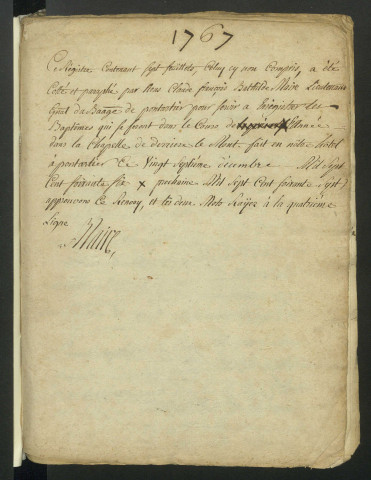 1767
Ce Registre Contenant sept feuillets, Celuy cy non Compris, a été
Cotté et paraphé par Nous Claude françois Bathilde Maire Lieutenant
Gnal du Baage de pontarlier pour servir a Enregistrer les
Baptêmes qui se feront dans le Cours de L'année
dans la Chapelle de derriere le Mont. fait en notre hotel
à pontarlier Ce Vingt Septième décembre Mil Sept
Cent soixante six x prochaine Mil Sept Cent soixante Sept
approuvons Ce Renvoy, et les deux Mots Rayés à la quatrième
Ligne
Maire